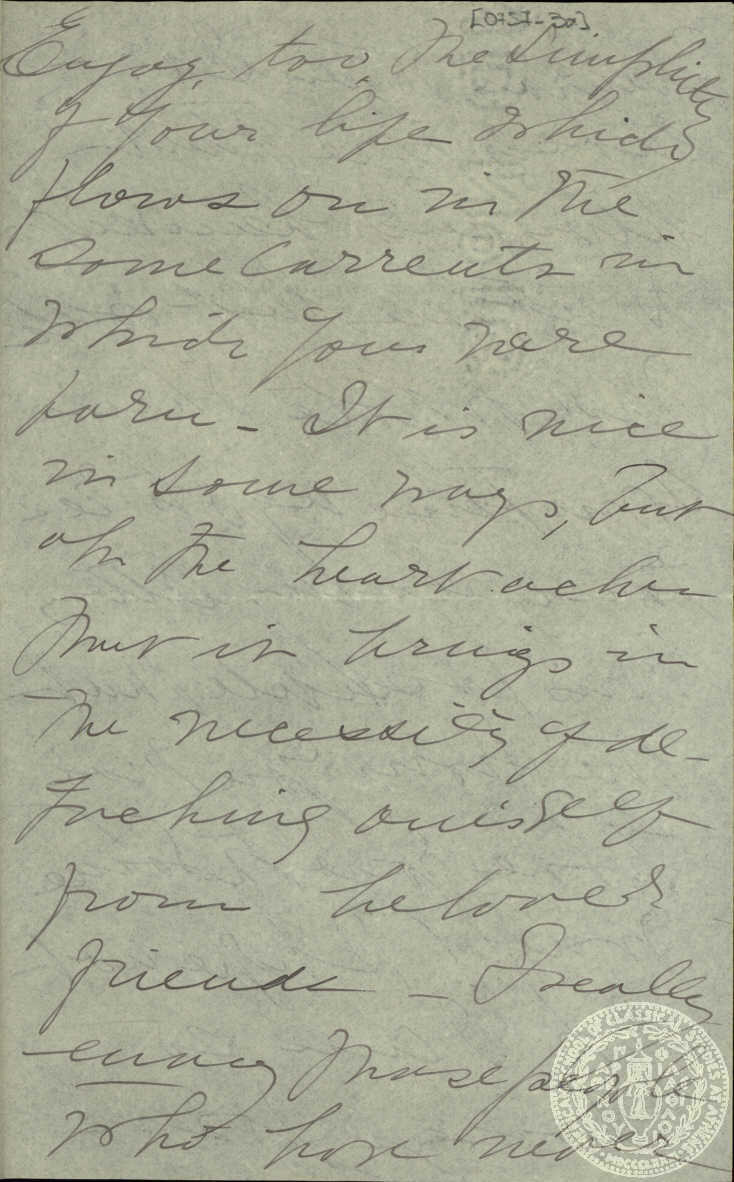 [0757-30]
Enjoy, too, the simplicity
of your life which
flows on in the
same currents in
which you were
born - It is nice
in some ways, but
oh the heart aches
that it brings in
the necessity of de-
taching oneself
from beloved
friends - I really
envy those people
who have never
SCHOOL OF CLASSICAL STUDIES AT ATHENS